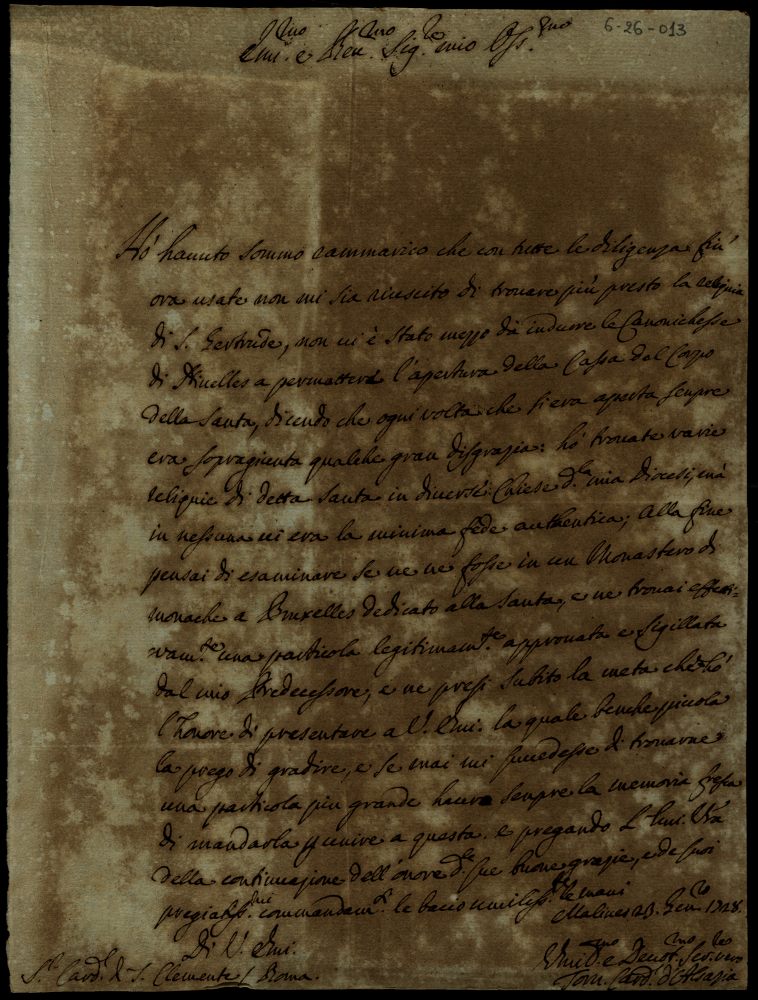 6-26-013
Em.mo e Rev.mo Sig.re mio Oss.mo
Hò hauuto sommo rammarico che con tutte le diligenze fin'
ora usate non mi sia riuscito di trouare più presto la reliquia
di S. Gertrude, non ui è stato mezzo dà indurre le Canonichesse
di Niuelles a permettere l'apertura della Cassa del Corpo
della Santa, dicendo che ogni uolta che si era aperta sempre
era sopragiunta qualche gran disgrazia: hò trouate varie
reliquie di detta Santa in diuerse Chiese d.la mia Diocesi, mà
in nessuna ui era la minima fede authentica; Alla fine
pensai di esaminare se ue ne fosse in un Monastero di
monache a Bruxelles dedicato alla Santa, e ne trouai effetti=
vam.te una particola legitimam.te approuata e sigillata
dal mio Predecessore, e ne presi subito la metà che hò
l'honore di presentare a V. Emi. la quale benche piccola
la prego di gradire, e se mai mi succedesse di trouarne
una particola più grande haurò sempre la memoria fresca
di mandarla p unire a questa. e pregando L'Emi. Vra
della continuazione dell'onore d.le sue buone grazie, e de suoi
pregiatiss.mi commandam.ti le bacio umiliss.te le mani
Malines 23. Gen.ro 1728.
Di V. Emi.
S.r Card.l di S. Clemente / Roma.
Umil.mo e Deuot.mo Ser.re vero
Tom. Card. d'Alsazia